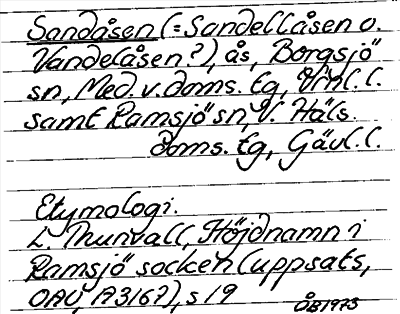 Sandåsen (= Sandellåsen o.
Vandelåsen?), ås, Borgsjö
sn, Med. v. doms. tg, Vnl. l.
samt Ramsjö sn, V. Häls.
doms. tg, Gävl. l.
Etymologi.
L. Thunvall, Höjdnamn i
Ramsjö socken (uppsats,
OAU, A316?), s 19
ÖB1973